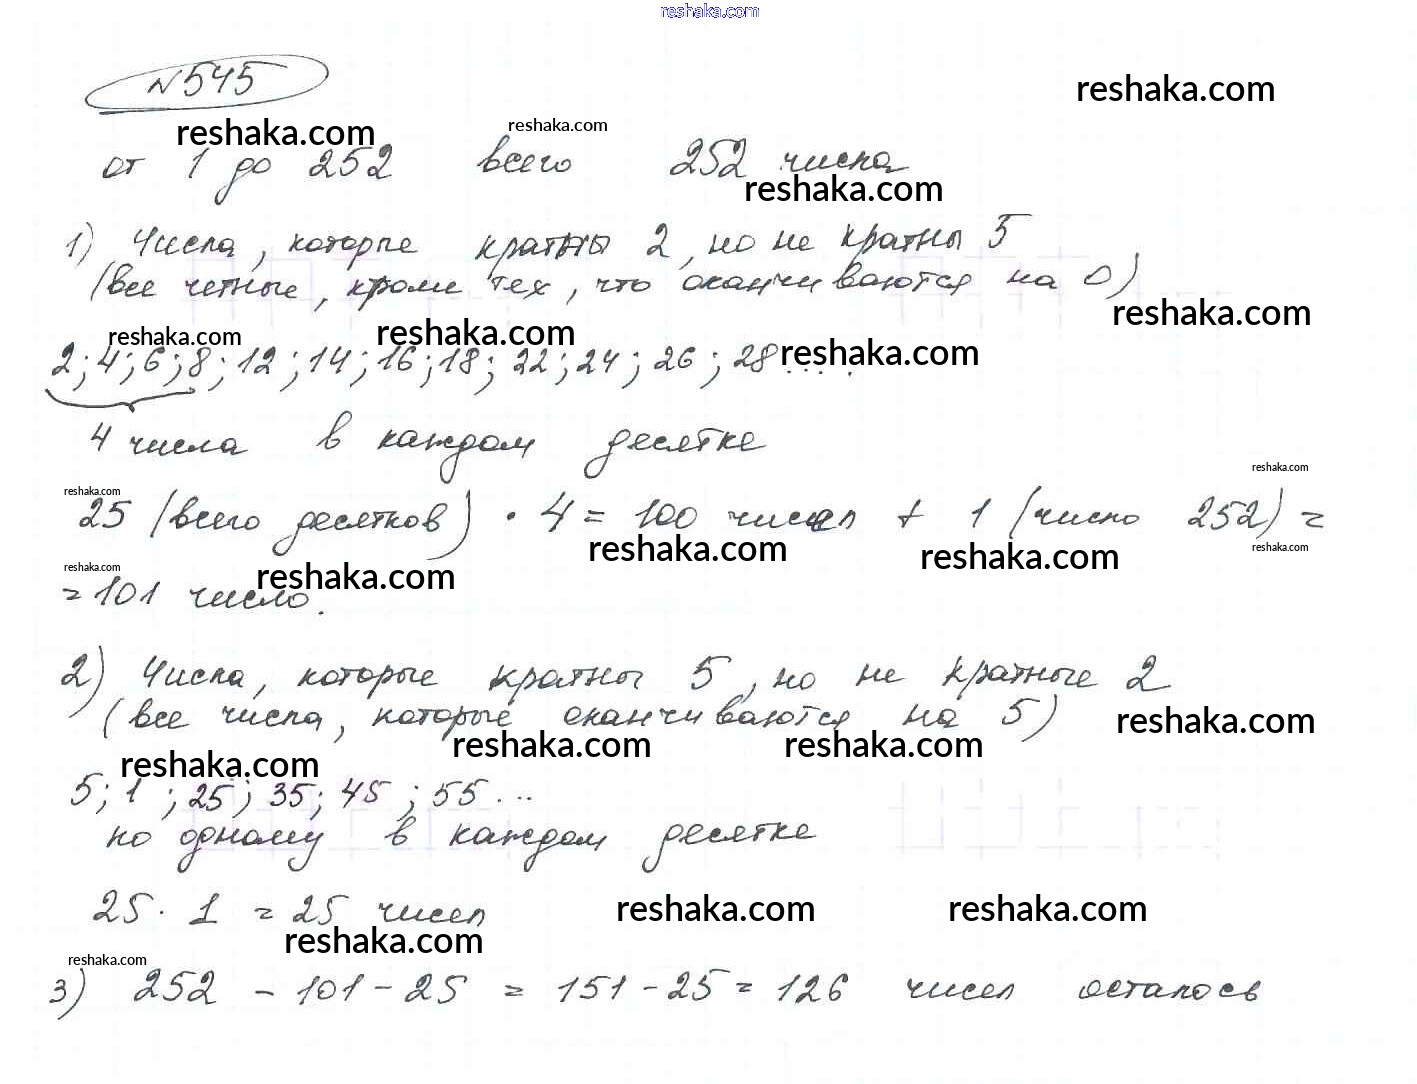 reshaka.com
№545
reshaka.com
reshaka.com
reshaka.com
от 1 до 252 всего 252 числа
reshaka.com
1) Числа, которые кратны 2, но не кратны 5
(все четные, кроме тех, что оканчиваются на 0)
reshaka.com
reshaka.com
reshaka.com
2; 4; 6; 8; 12; 14; 16; 18; 22; 24; 26; 28 ....
reshaka.com
4 числа в каждом десятке
reshaka.com
reshaka.com
25 (всего десятков) · 4 = 100 чисел + 1 (число 252) =
reshaka.com
reshaka.com
reshaka.com
reshaka.com
reshaka.com
= 101 число.
2) Числа, которые кратны 5, но не кратные 2
(все числа, которые оканчиваются на 5)
reshaka.com
reshaka.com
reshaka.com
reshaka.com
5; 1 ; 25; 35; 45 ; 55 ...
по одному в каждом десятке
25 · 1 = 25 чисел
reshaka.com
reshaka.com
reshaka.com
reshaka.com
3) 252 - 101 - 25 = 151 - 25 = 126 чисел осталось